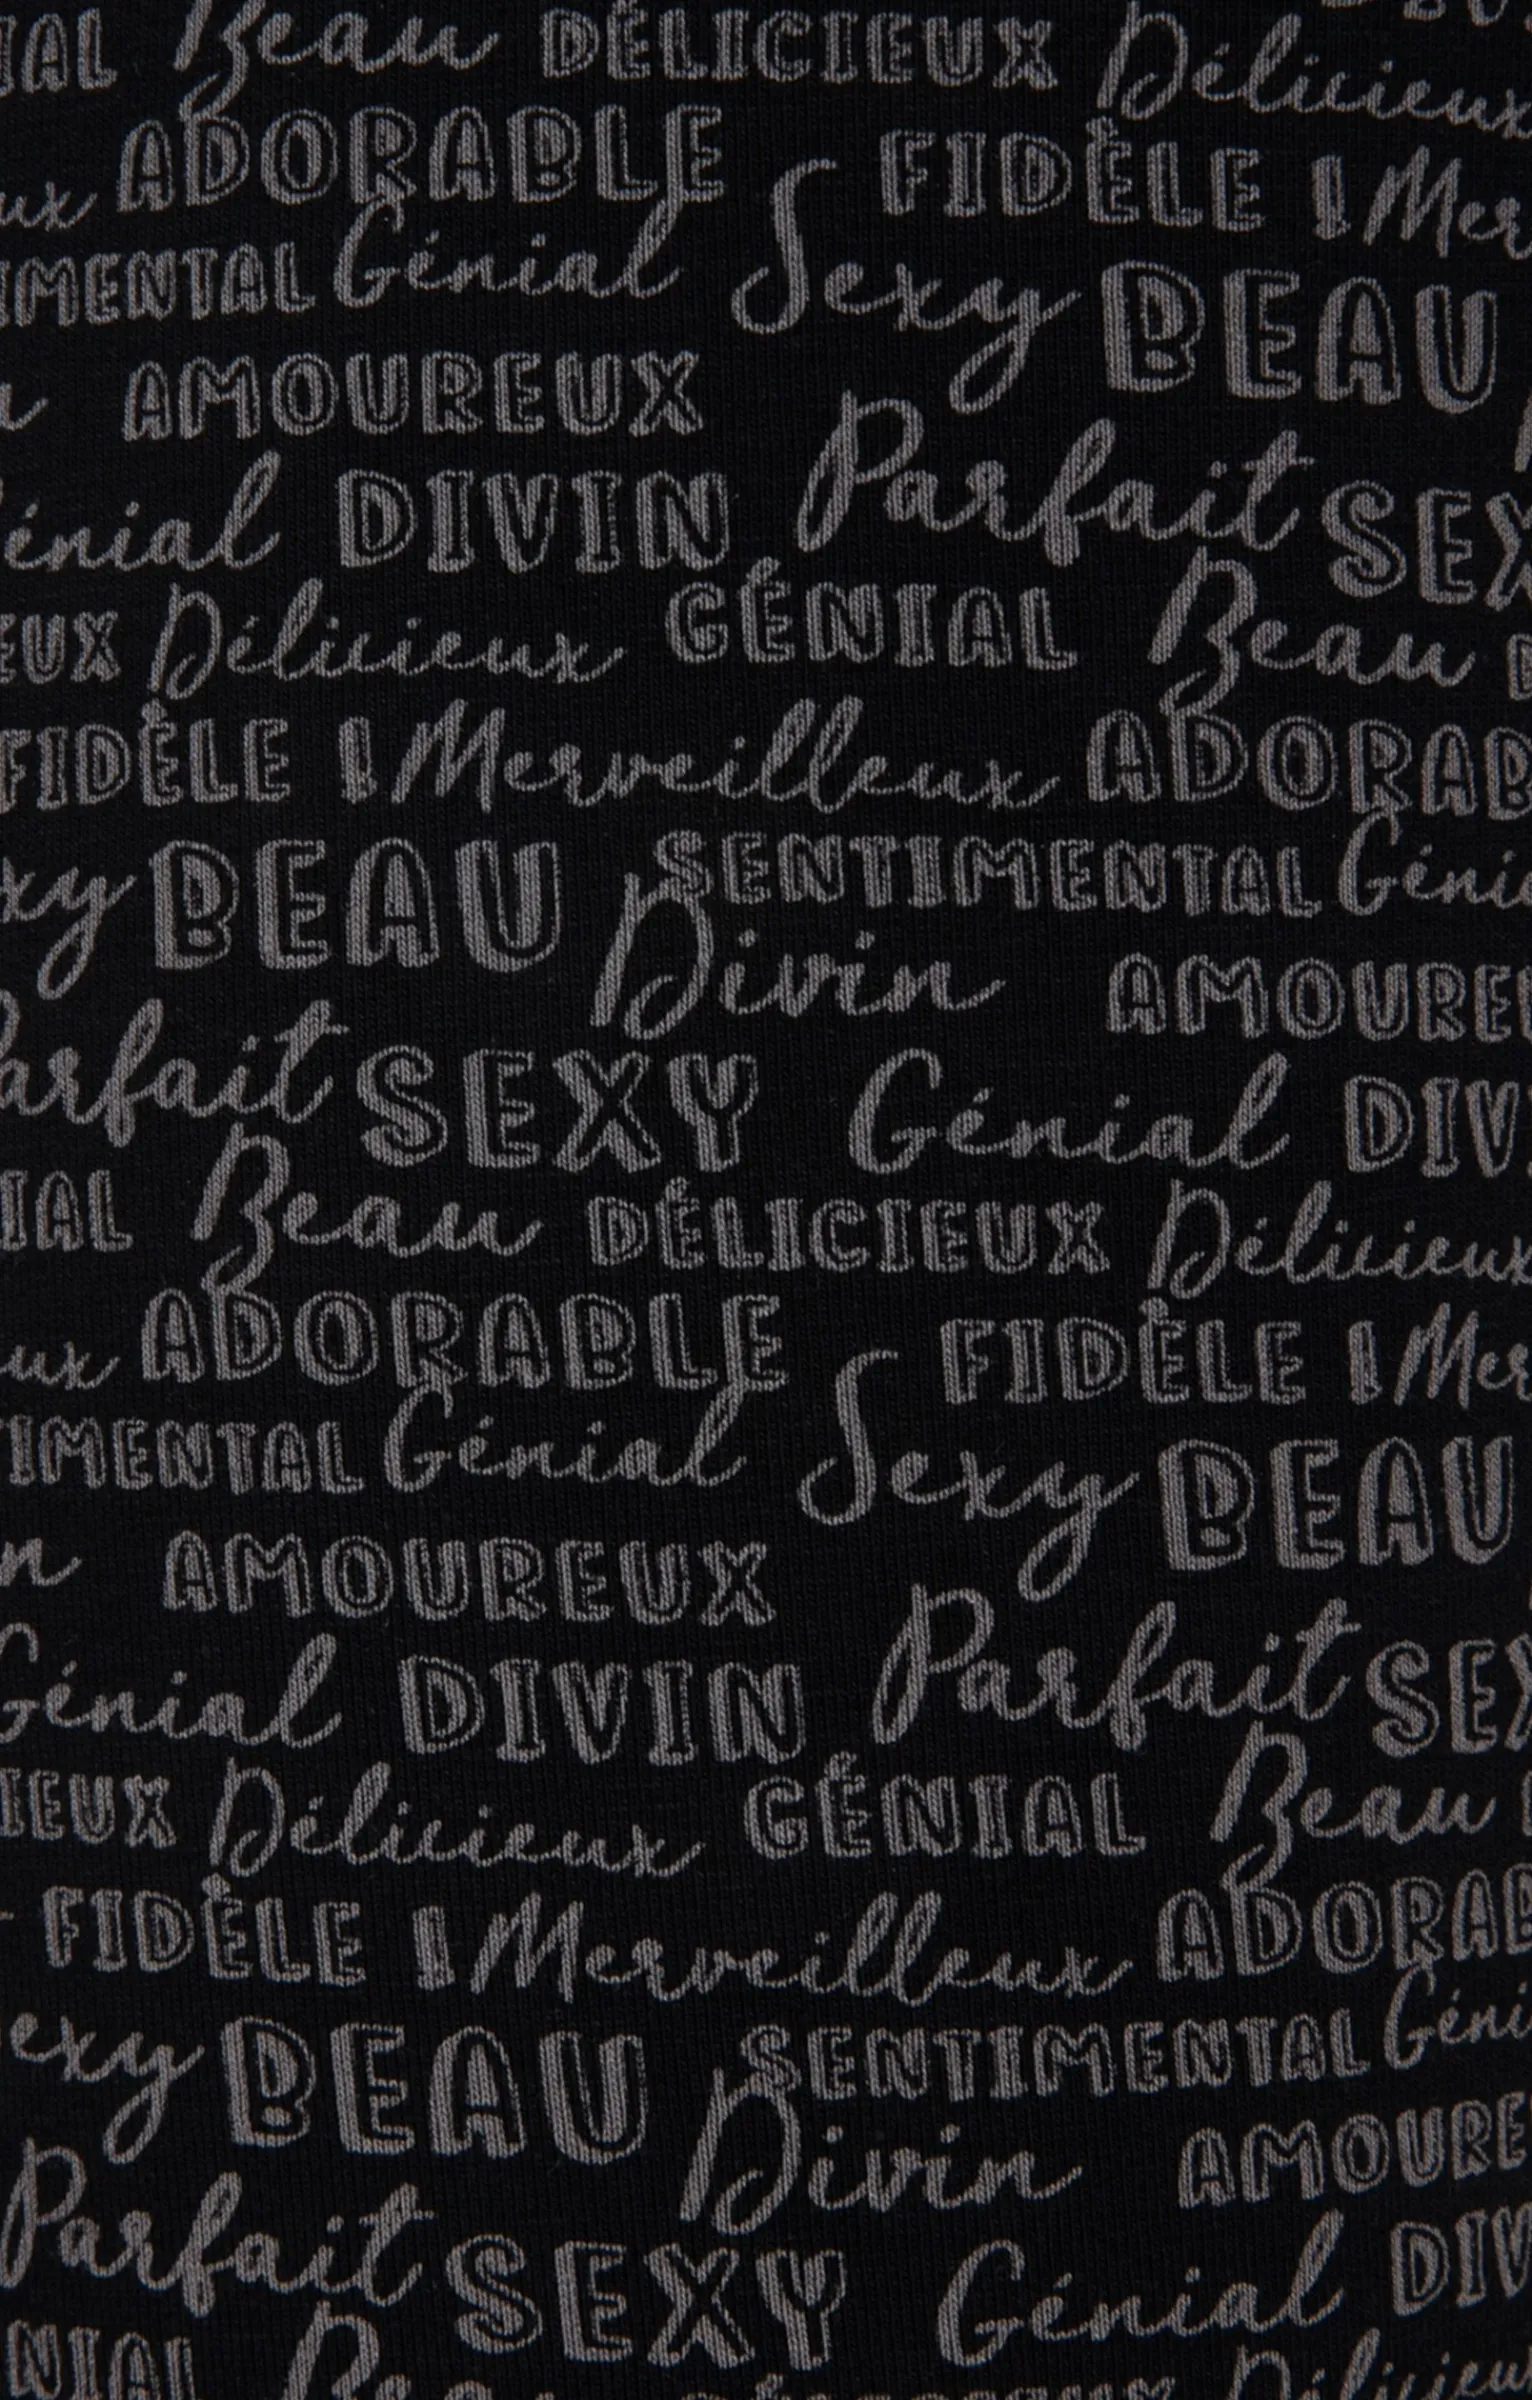 IAL Beau DÉLICIEUX Délicieux
ux ADORABLE FIDÈLE ! Mer
IMENTAL Génial Sexy BEAU
AMOUREUX
énial DIVIN Parfait SEX
EUX Délicieux GÉNIAL Beau D
FIDÈLE ! Merveilleux ADORAB
xy BEAU SENTIMENTAL Géni
Divin AMOURE
arfait SEXY Génial DIV
IAL Beau DÉLICIEUX Délicieux
ux ADORABLE FIDÈLE ! Mer
TIMENTAL Génial Sexy BEAU
n AMOUREUX
Génial DIVIN Parfait SEX
IEUX Délicieux GÉNIAL Beau
FIDÈLE ! Merveilleux ADORAB
exy BEAU SENTIMENTAL Géni
Divin AMOURE
Parfait SEXY Génial DIV
NIAL Beau Délicieu